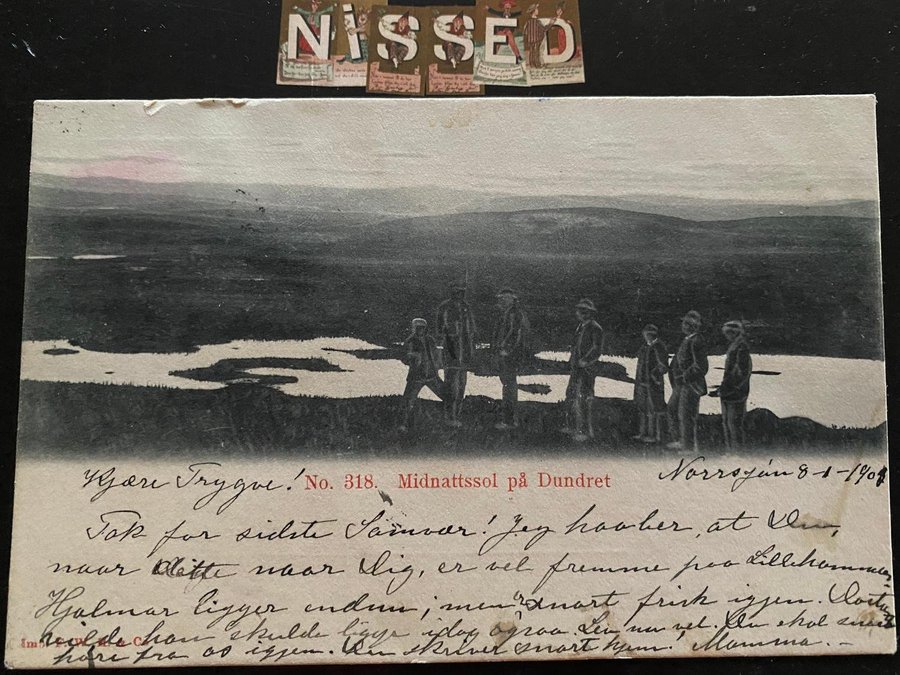 NISSED
Kjære Trygve! No. 318. Midnattssol på Dundret Norrsjön 8-1-190
Tak for sidste Samvær! Jeg haaber, at Du,
naar dette naar Dig, er vel fremme paa Lillehammer.
Hjalmar ligger endnu; men snart frisk igjen. 
vilde han skulde ligge idag ogsaa. Lev nu vel. Du skal snart
høre fra os igjen. Du skriver snart hjem! Mamma. –